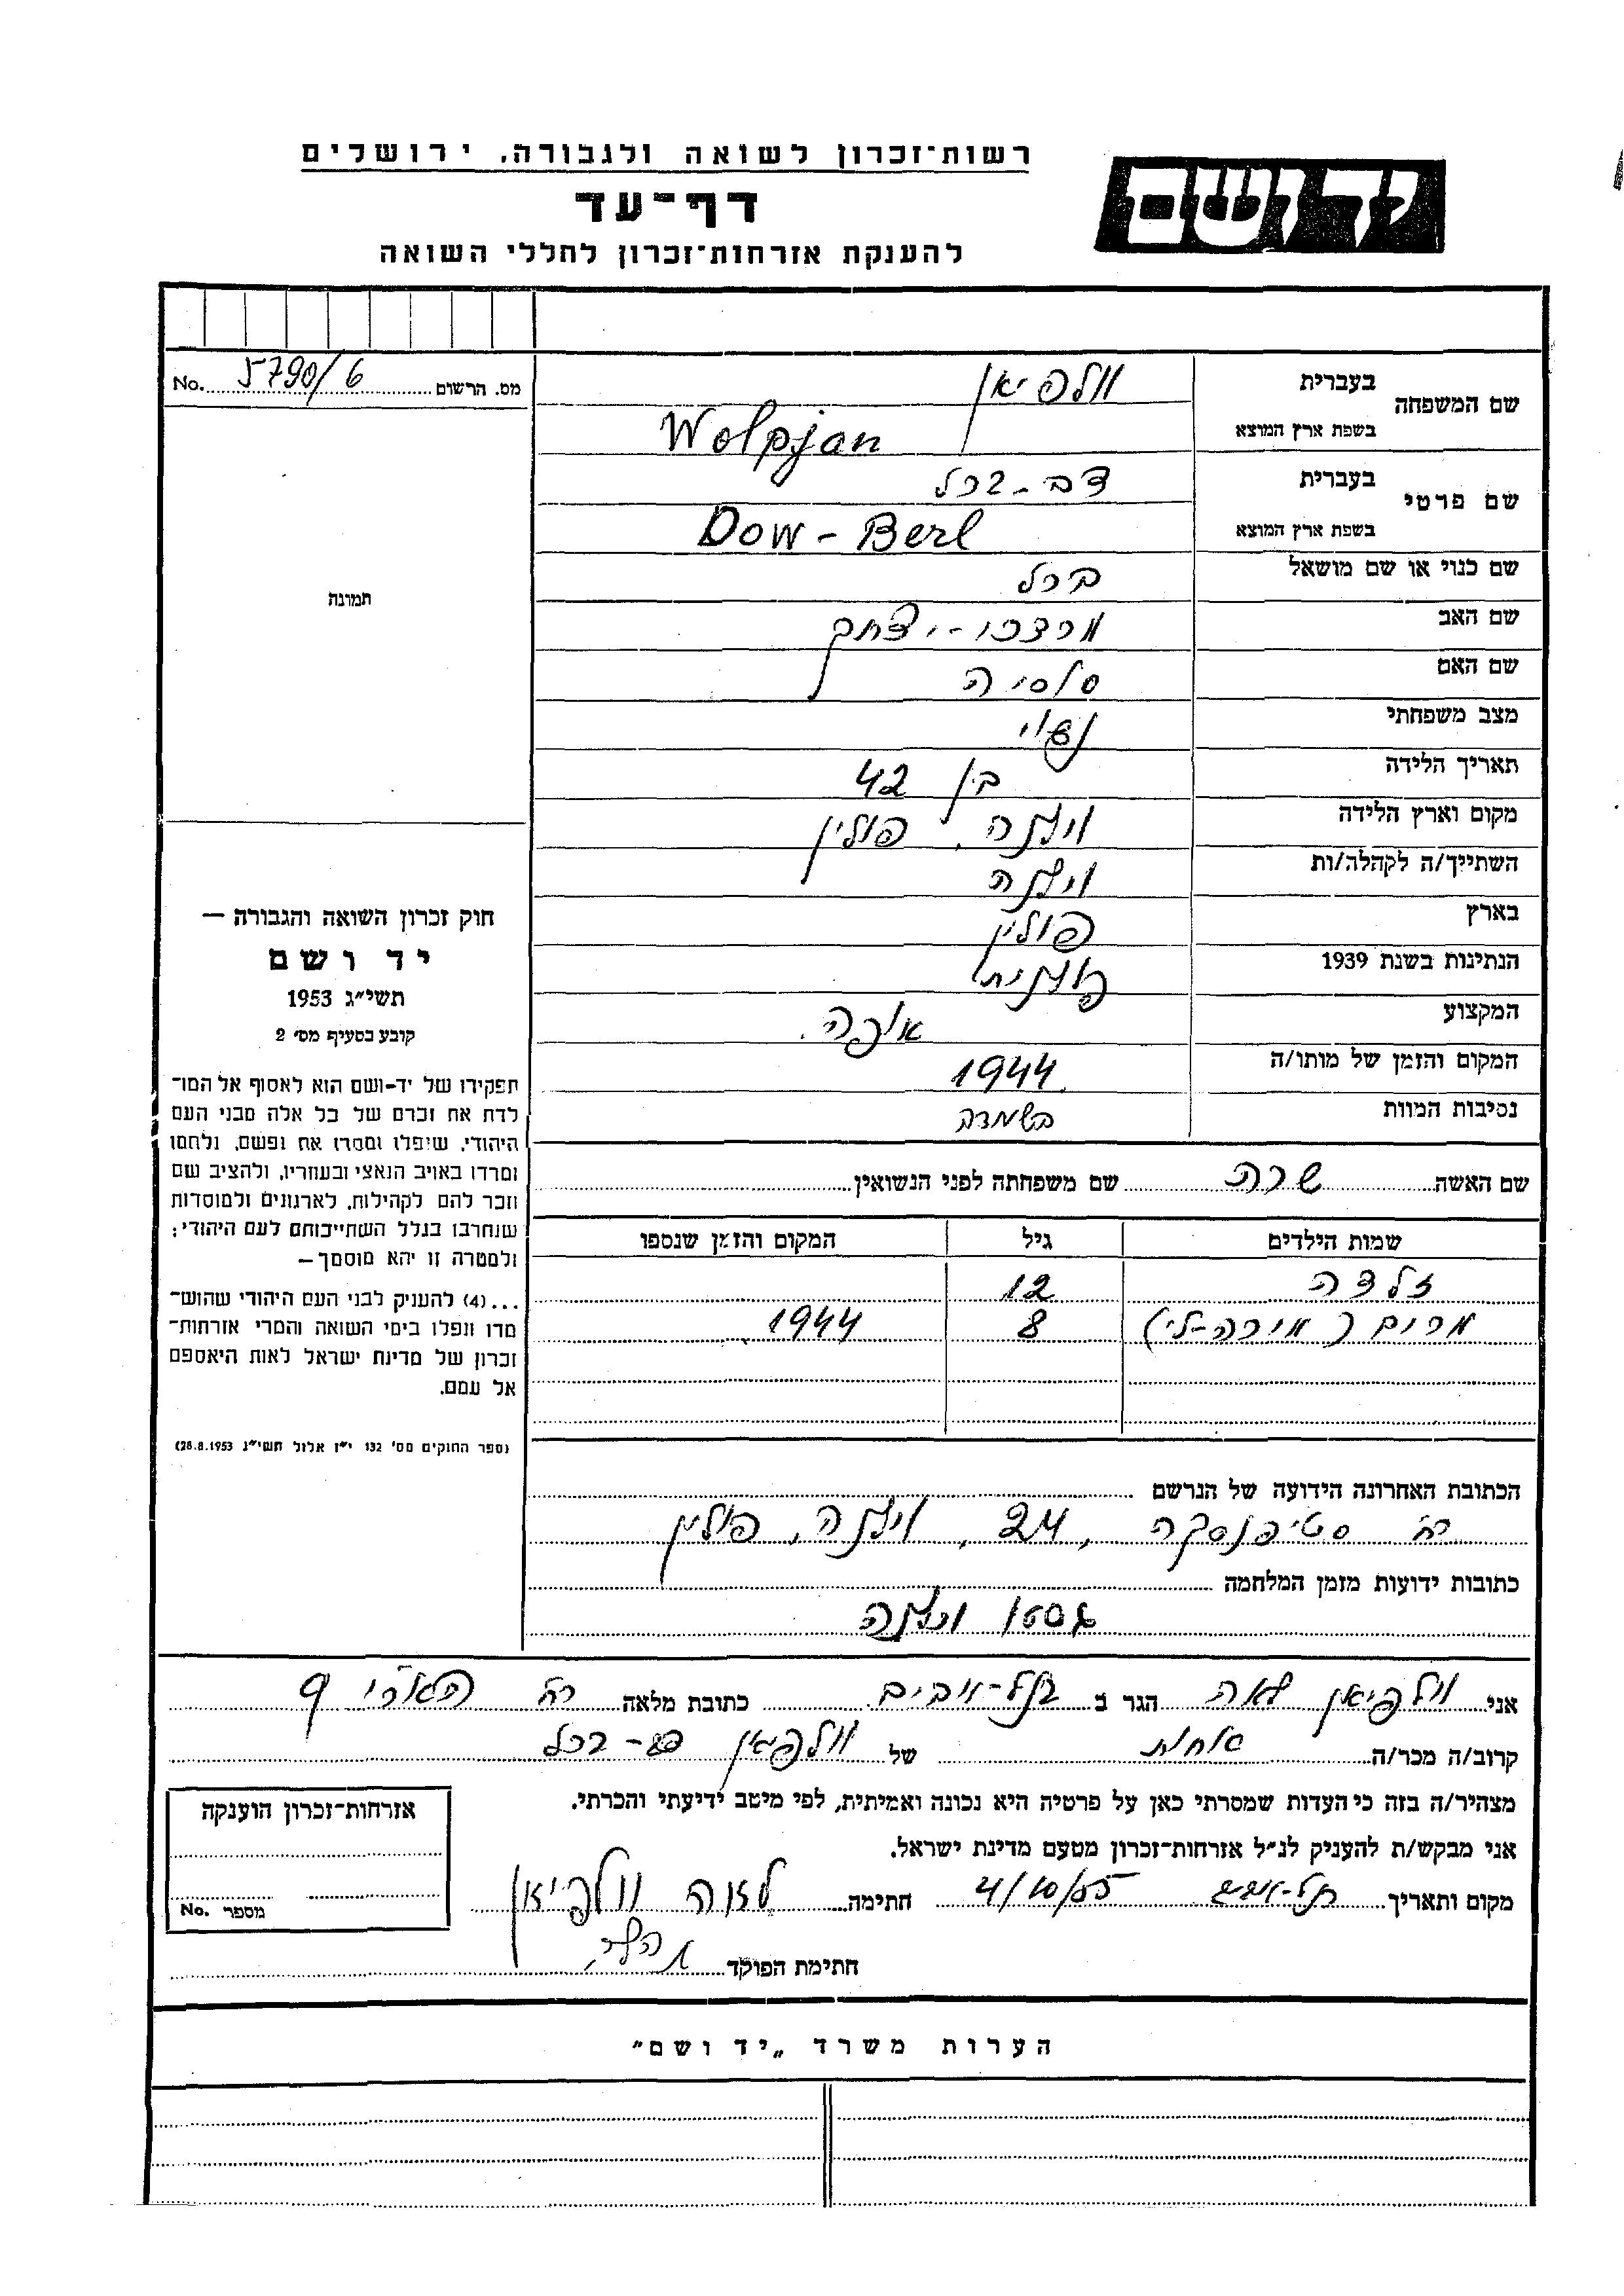 רשות־זכרון לשואה ולגבורה, ירושלים
יד ושם
דף־עד
להענקת אזרחות־זכרון לחללי השואה
מס. הרשום 5790/6 No.
שם המשפחה בעברית וולפיאן
בשפת ארץ המוצא Wolpjan
שם פרטי בעברית דב-ברל
בשפת ארץ המוצא Dow-Berl
שם כנוי או שם מושאל ברל
שם האב מרדכי-יצחק
שם האם
מצב משפחתי נשוי
תאריך הלידה בן 42
מקום וארץ הלידה וילנה, פולין
השתייך/ה לקהלה/ות וילנה
בארץ פולין
הנתינות בשנת 1939 פולנית
המקצוע אופה.
המקום והזמן של מותו/ה 1944
נסיבות המוות בשמדה
תמונה
חוק זכרון השואה והגבורה —
יד ושם
תשי״ג 1953
קובע בסעיף מס׳ 2
תפקידו של יד-ושם הוא לאסוף אל המו־
לדת את זכרם של כל אלה מבני העם
היהודי, שיפלו ומסרו את נפשם, נלחמו
ומרדו באויב הנאצי ובעוזריו, ולהציב שם
וזכר להם לקהילות, לארגונים ולמוסדות
שנחרבו בגלל השתייכותם לעם היהודי;
ולמטרה זו יהא מוסמך—
...(4) להעניק לבני העם היהודי שהוש־
מדו ונפלו בימי השואה והמרי אזרחות־
זכרון של מדינת ישראל לאות היאספם
אל עמם.
(ספר החוקים מס׳ 132 י״ז אלול תשי״ג 28.8.1953)
שם האשה שרה שם משפחתה לפני הנשואין
שמות הילדים גיל המקום והזמן שנספו
זלדה 12
מרים (מירה-לי) 8 1944
הכתובת האחרונה הידועה של הנרשם
רח׳ סטיפנסקה, 24, וילנה, פולין
כתובות ידועות מזמן המלחמה
גטו וילנה
אני וולפיאן לאה הגר ב תל-אביב כתובת מלאה רח׳ האר״י 9
קרוב/ה מכר/ה אחות של וולפיאן דב-ברל
מצהיר/ה בזה כי העדות שמסרתי כאן על פרטיה היא נכונה ואמיתית, לפי מיטב ידיעתי והכרתי.
אני מבקש/ת להעניק לנ״ל אזרחות־זכרון מטעם מדינת ישראל.
מקום ותאריך תל-אביב 4/10/55 חתימה לאה וולפיאן
חתימת הפוקד
אזרחות־זכרון הוענקה
מספר No.
הערות משרד „יד ושם״